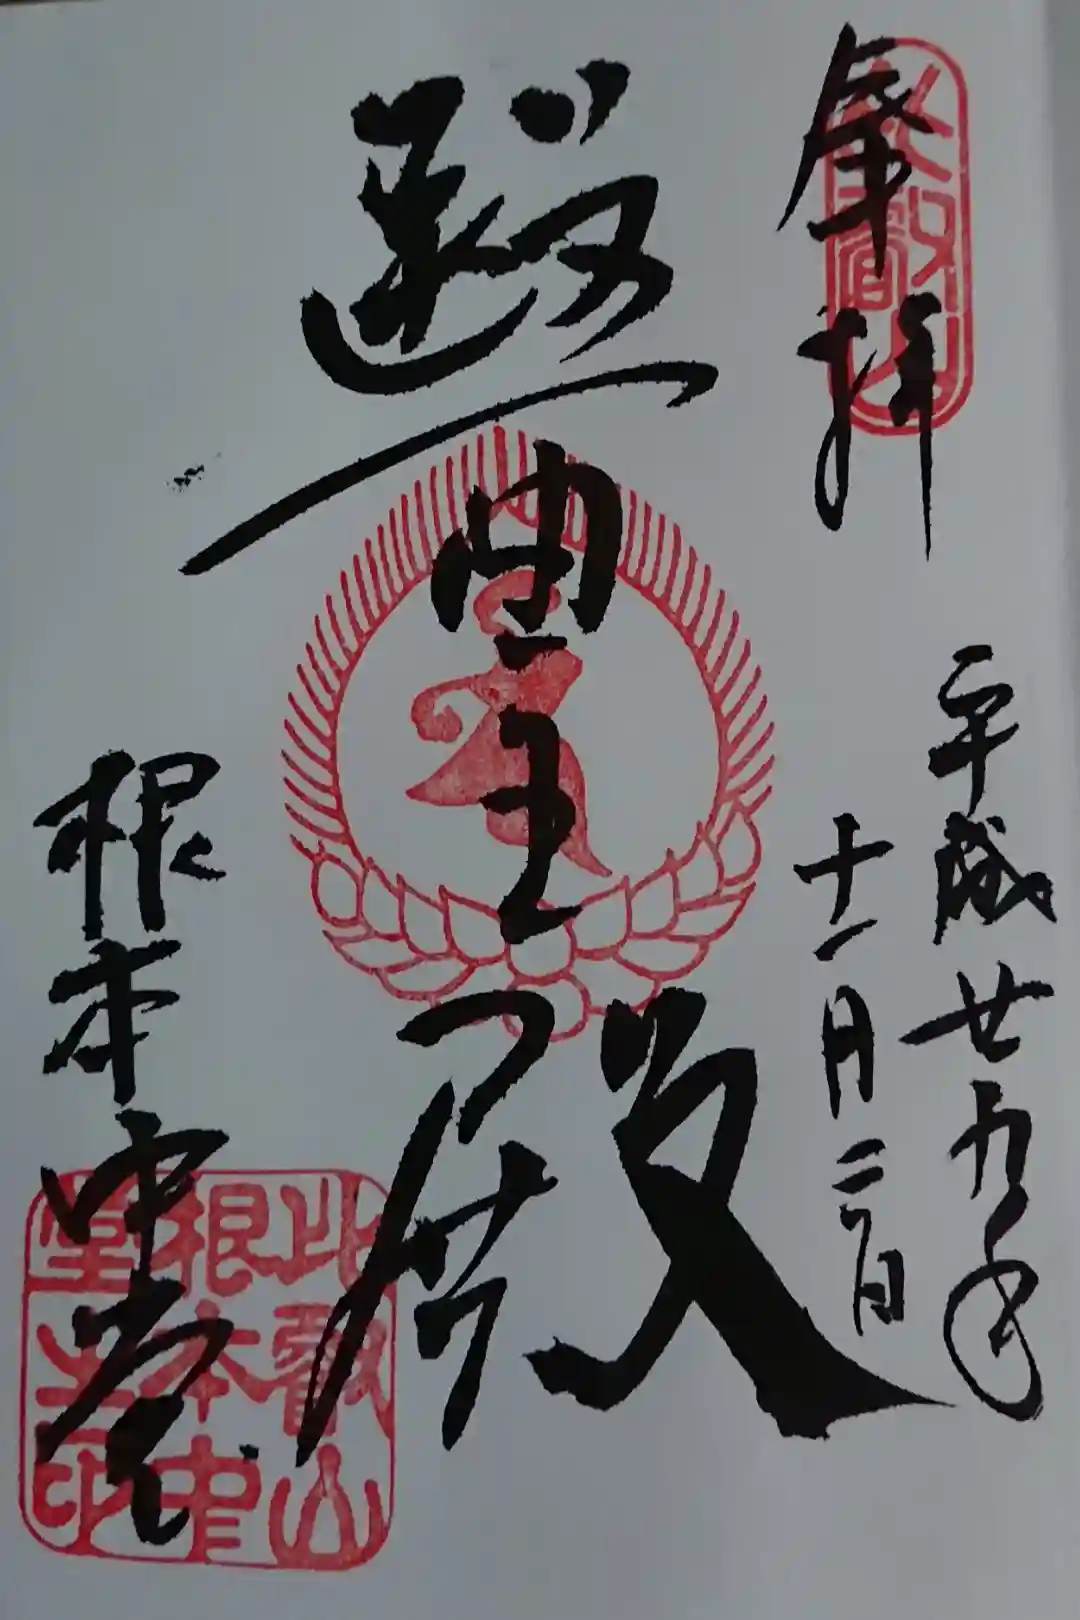 奉拝
比叡山
平成廿九年
十一月二日
醫王殿
根本中堂
比叡山
根本中
堂主印